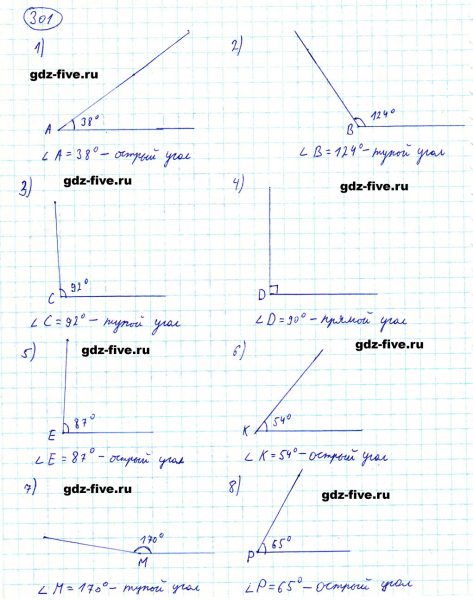 301
1) 2)
gdz-five.ru
gdz-five.ru
A 38° B 124°
∠A = 38° – острый угол ∠B = 124° – тупой угол
gdz-five.ru gdz-five.ru
3) 4)
C 92° D
∠C = 92° – тупой угол ∠D = 90° – прямой угол
5) gdz-five.ru 6) gdz-five.ru
E 87° K 54°
∠E = 87° – острый угол ∠K = 54° – острый угол
7) gdz-five.ru 8) gdz-five.ru
170° M P 65°
∠M = 170° – тупой угол ∠P = 65° – острый угол